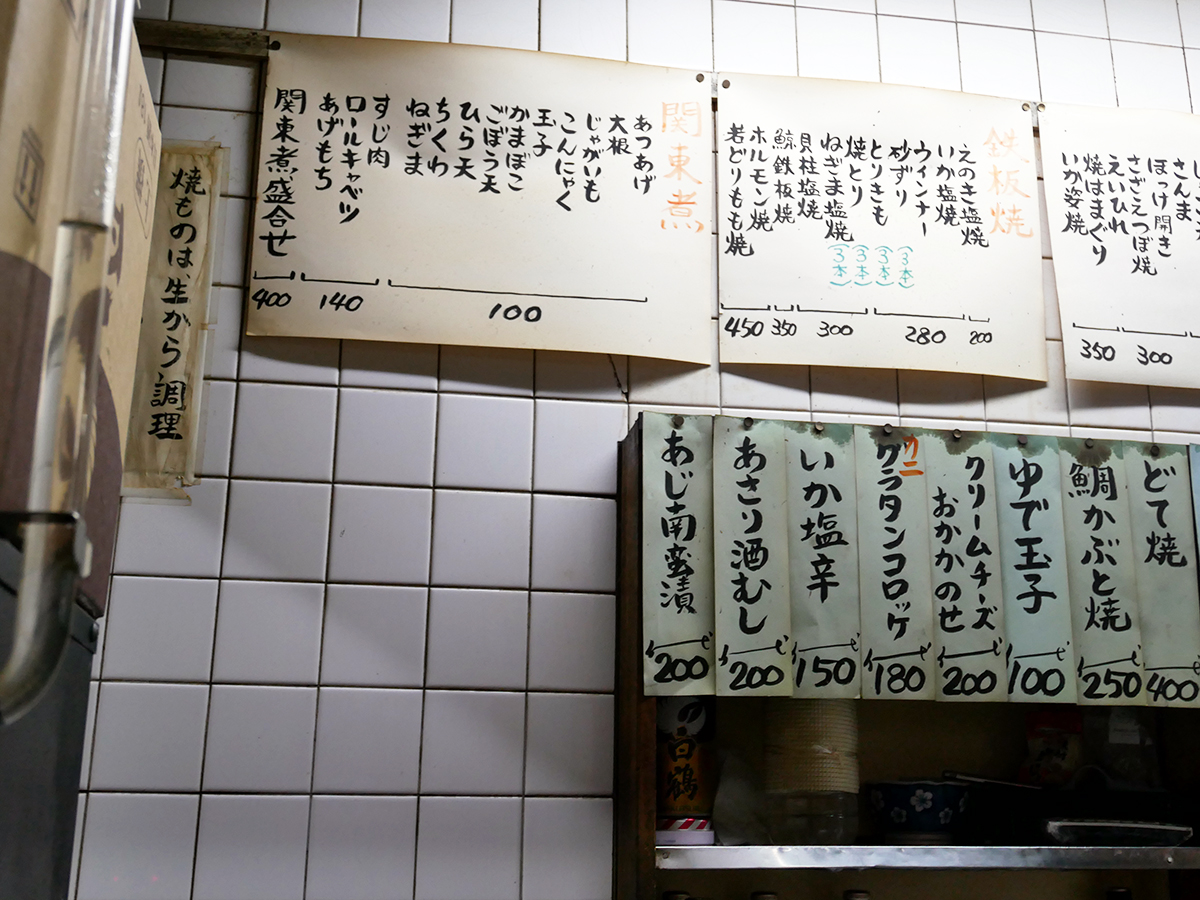 関東煮
あつあげ
大根
じゃがいも
こんにゃく
玉子
かまぼこ
ごぼう天
ひら天
ちくわ
ねぎま
100
すじ肉
ロールキャベツ
あげもち
140
関東煮盛合せ
400
鉄板焼
えのき塩焼
200
いか塩焼
ウィンナー
砂ずり（3本）
とりきも（3本）
280
焼とり（3本）
ねぎま塩焼（3本）
貝柱塩焼
300
鯨鉄板焼
350
ホルモン焼
若どりもも焼
450
さんま
ほっけ開き
さざえつぼ焼
えいひれ
300
焼はまぐり
いか姿焼
350
焼ものは、生から調理
どて焼
400
鯛かぶと焼
250
ゆで玉子
100
クリームチーズ
おかかのせ
200
カニ
グラタンコロッケ
180
いか塩辛
150
あさり酒むし
200
あじ南蛮漬
200
の
白鶴